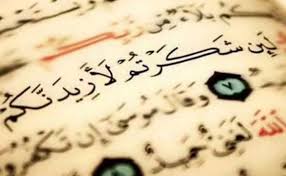 لَئِن شَكَرْتُمْ لَأَزِيدَنَّكُمْ
٧ وَقَالَ مُوسَى إِن تَكْفُرُوا
اللَّهَ لَغَنِيٌّ حَمِيدٌ